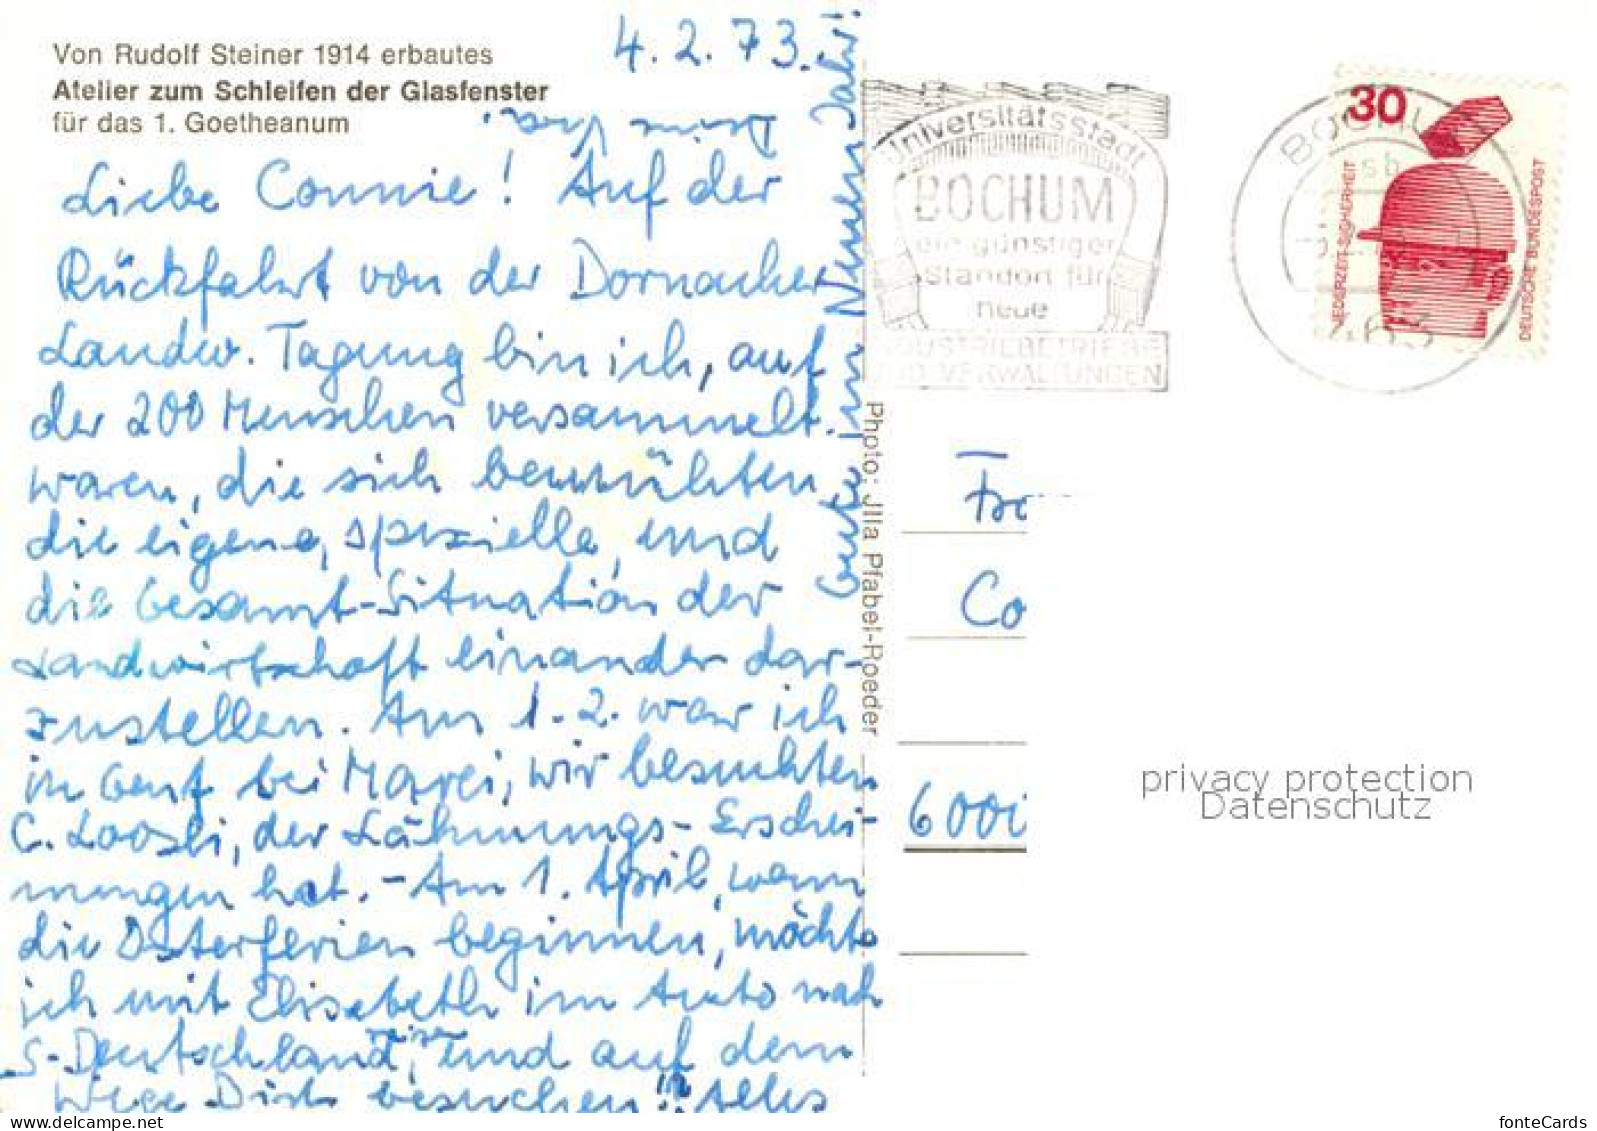 Von Rudolf Steiner 1914 erbautes
Atelier zum Schleifen der Glasfenster
für das 1. Goetheanum
4.2.73.
Liebe Connie! Auf der
Rückfahrt von der Dornacher
Landw. Tagung bin ich, auf
der 200 Menschen versammelt
waren, die sich bemühten,
die eigene, spezielle, und
die Gesamt-Situation der
Landwirtschaft einander dar-
zustellen. Am 1.2. war ich
in Genf bei Marei, wir besuchten
C. Loosli, der Lähmungs-Erschei-
nungen hat. - Am 1. April, wenn
die Osterferien beginnen, möchte
ich mit Elisabeth im Auto nach
S-Deutschland, und auf dem
Wege Dich besuchen!! Alles
Gute im Neuen Jahr!
Deine
Photo: Jlla Pfabel-Roeder
Universitätsstadt
BOCHUM
ein günstiger
Standort für
neue
INDUSTRIEBETRIEBE
UND VERWALTUNGEN
BOCHUM
463
30
JEDERZEIT-SICHERHEIT
DEUTSCHE BUNDESPOST
Fr
Co
600
privacy protection
Datenschutz
fonteCards